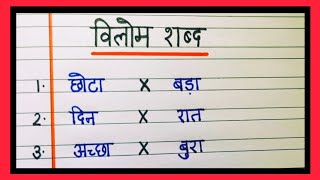 विलोम शब्द
1. छोटा X बड़ा
2. दिन X रात
3. अच्छा X बुरा